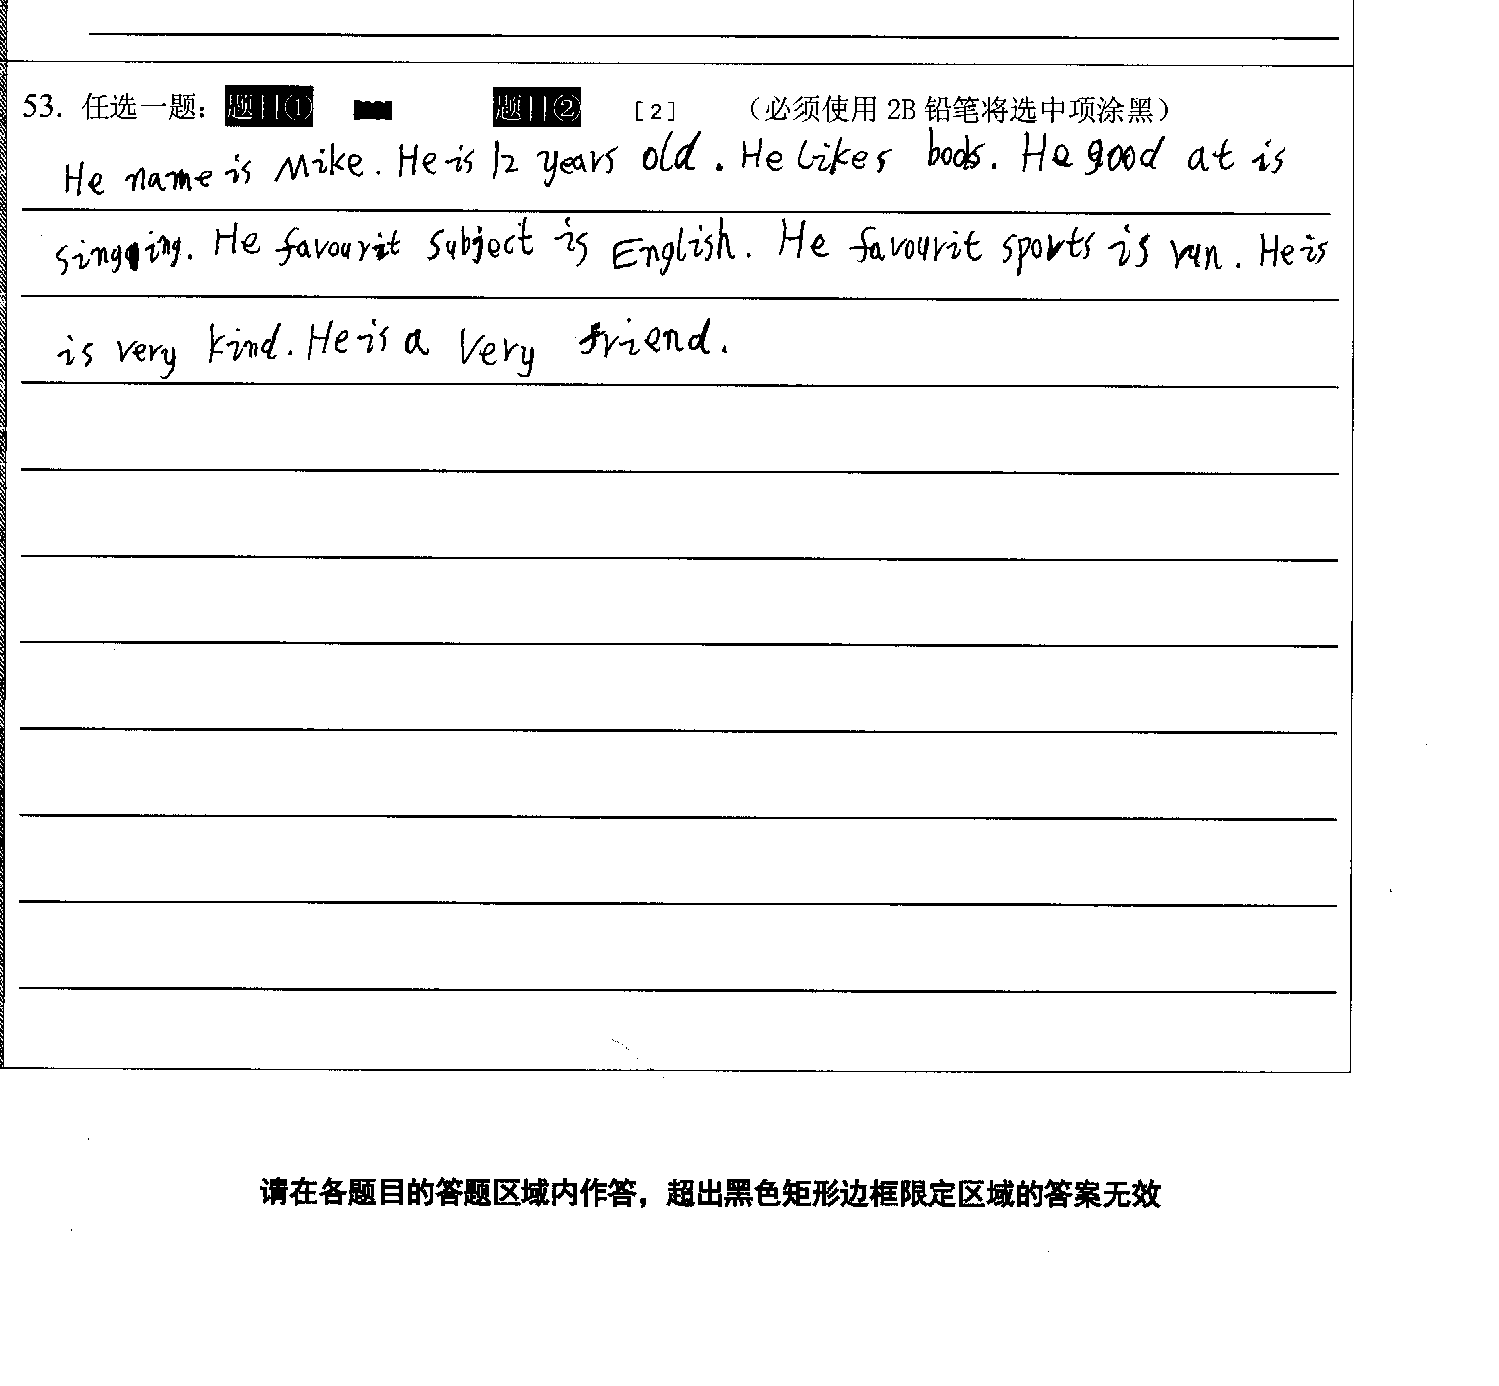 53. 任选一题： 题目① 题目② [2] （必须使用 2B 铅笔将选中项涂黑）
He name is Mike. He is 12 years old. He likes books. He good at is
singing. He favourit subject is English. He favourit sports is run. He is
is very kind. He is a very friend.
请在各题目的答题区域内作答，超出黑色矩形边框限定区域的答案无效